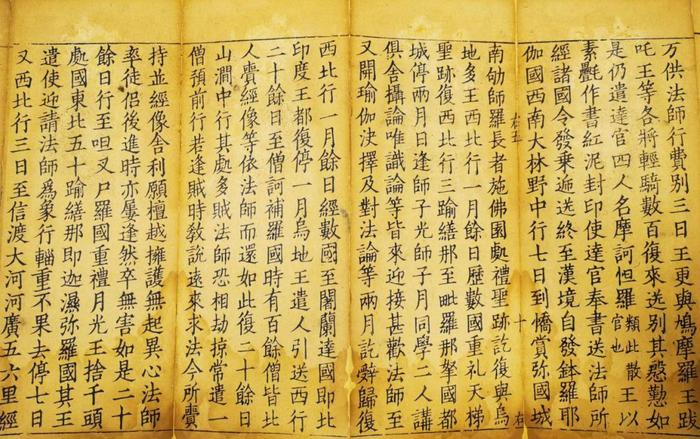 万供法師行費別三日王更與鳩摩羅王跋
吒王等各將輕騎數百復來送別其慇懃如
是仍遣達官四人名摩訶怛羅類此散官也王以
素㲲作書紅泥封印使達官奉書送法師所
經諸國令發乗遞送終至漢境自發鉢羅耶
伽國西南大林野中行七日到憍賞弥國城
南劬師羅長者施佛園處禮聖跡訖復與烏
地多王西北行一月餘日歷數國重礼天梯
聖跡復西北行三踰繕那至毗羅那拏國都
城停兩月日逢師子光師子月同學二人講
俱舍攝論唯識論等皆來迎接甚歡法師至
又開瑜伽決擇及對法論等兩月訖辝歸復
西北行一月餘日經數國至闍蘭達國即北
印度王都復停一月烏地王遣人引送西行
二十餘日至僧訶補羅國時有百餘僧皆北
人賷經像等依法師而還如此復二十餘日
山澗中行其處多賊法師恐相劫掠常遣一
僧預前行若逢賊時敎說遠來求法今所賷
持並經像舍利願檀越擁護無起異心法師
率徒侶後進時亦屢逢然卒無害如是二十
餘日行至呾叉尸羅國重禮月光王捨千頭
處國東北五十踰繕那即迦濕弥羅國其王
遣使迎請法師爲象行輜重不果去停七日
又西北行三日至信渡大河河廣五六里經